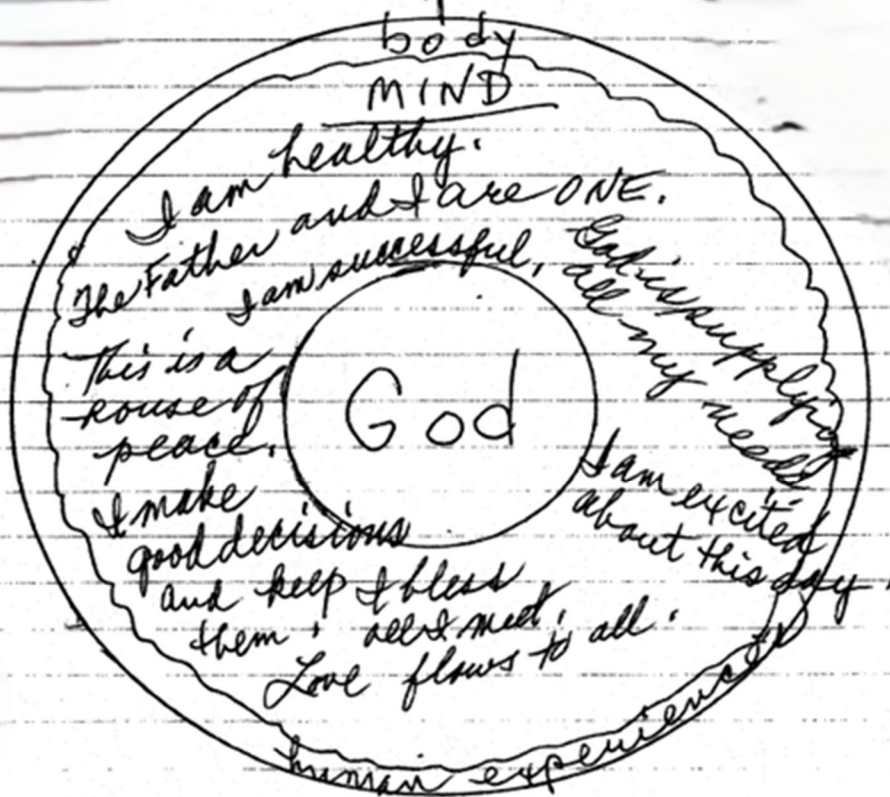 body
MIND
I am healthy.
The Father and I are ONE.
I am successful,
God is supplying
all my needs.
This is a
house of
peace.
God
I am excited
about this day.
I make
good decisions
and keep
them.
I bless
all I meet.
Love flows to all.
human experiences